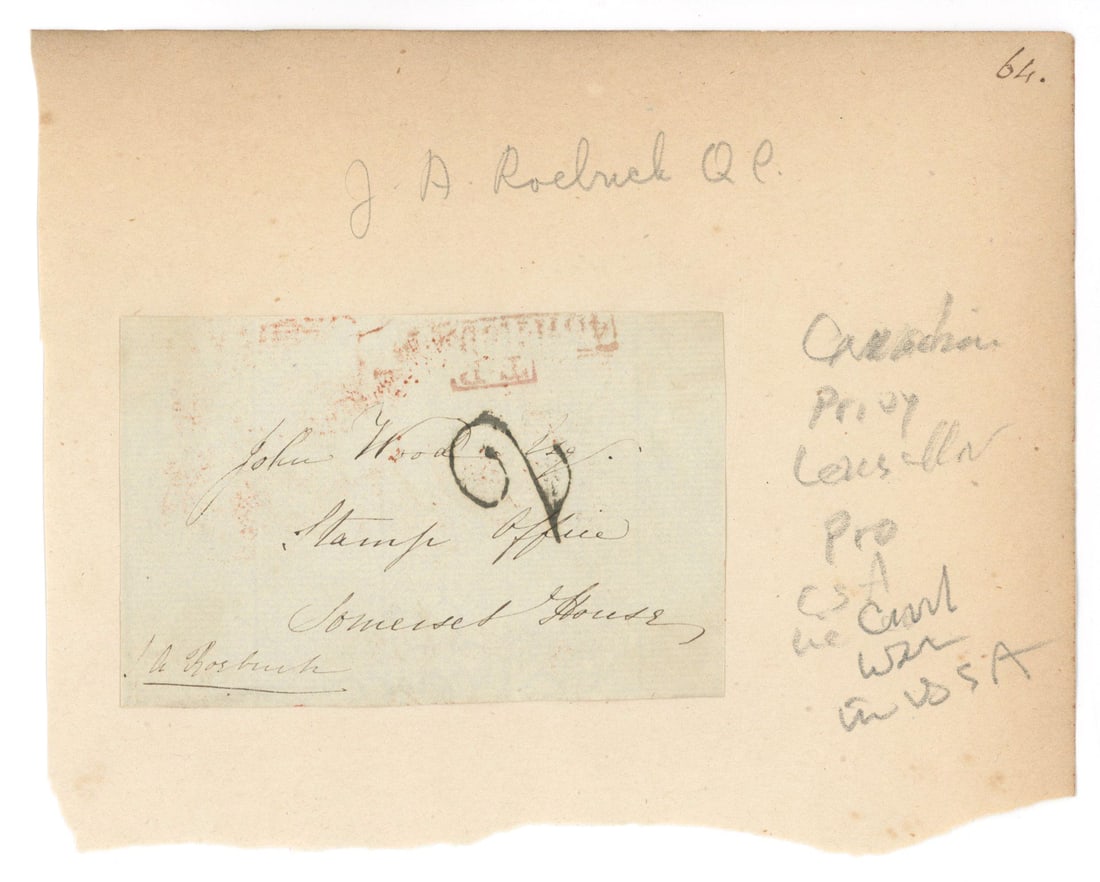 64.
J. A. Roebuck Q C.
2
John Wood Esq.
Stamp Office
Somerset House
J A Roebuck
Canadian
Privy
Pro
CSA
Civil
War
in USA